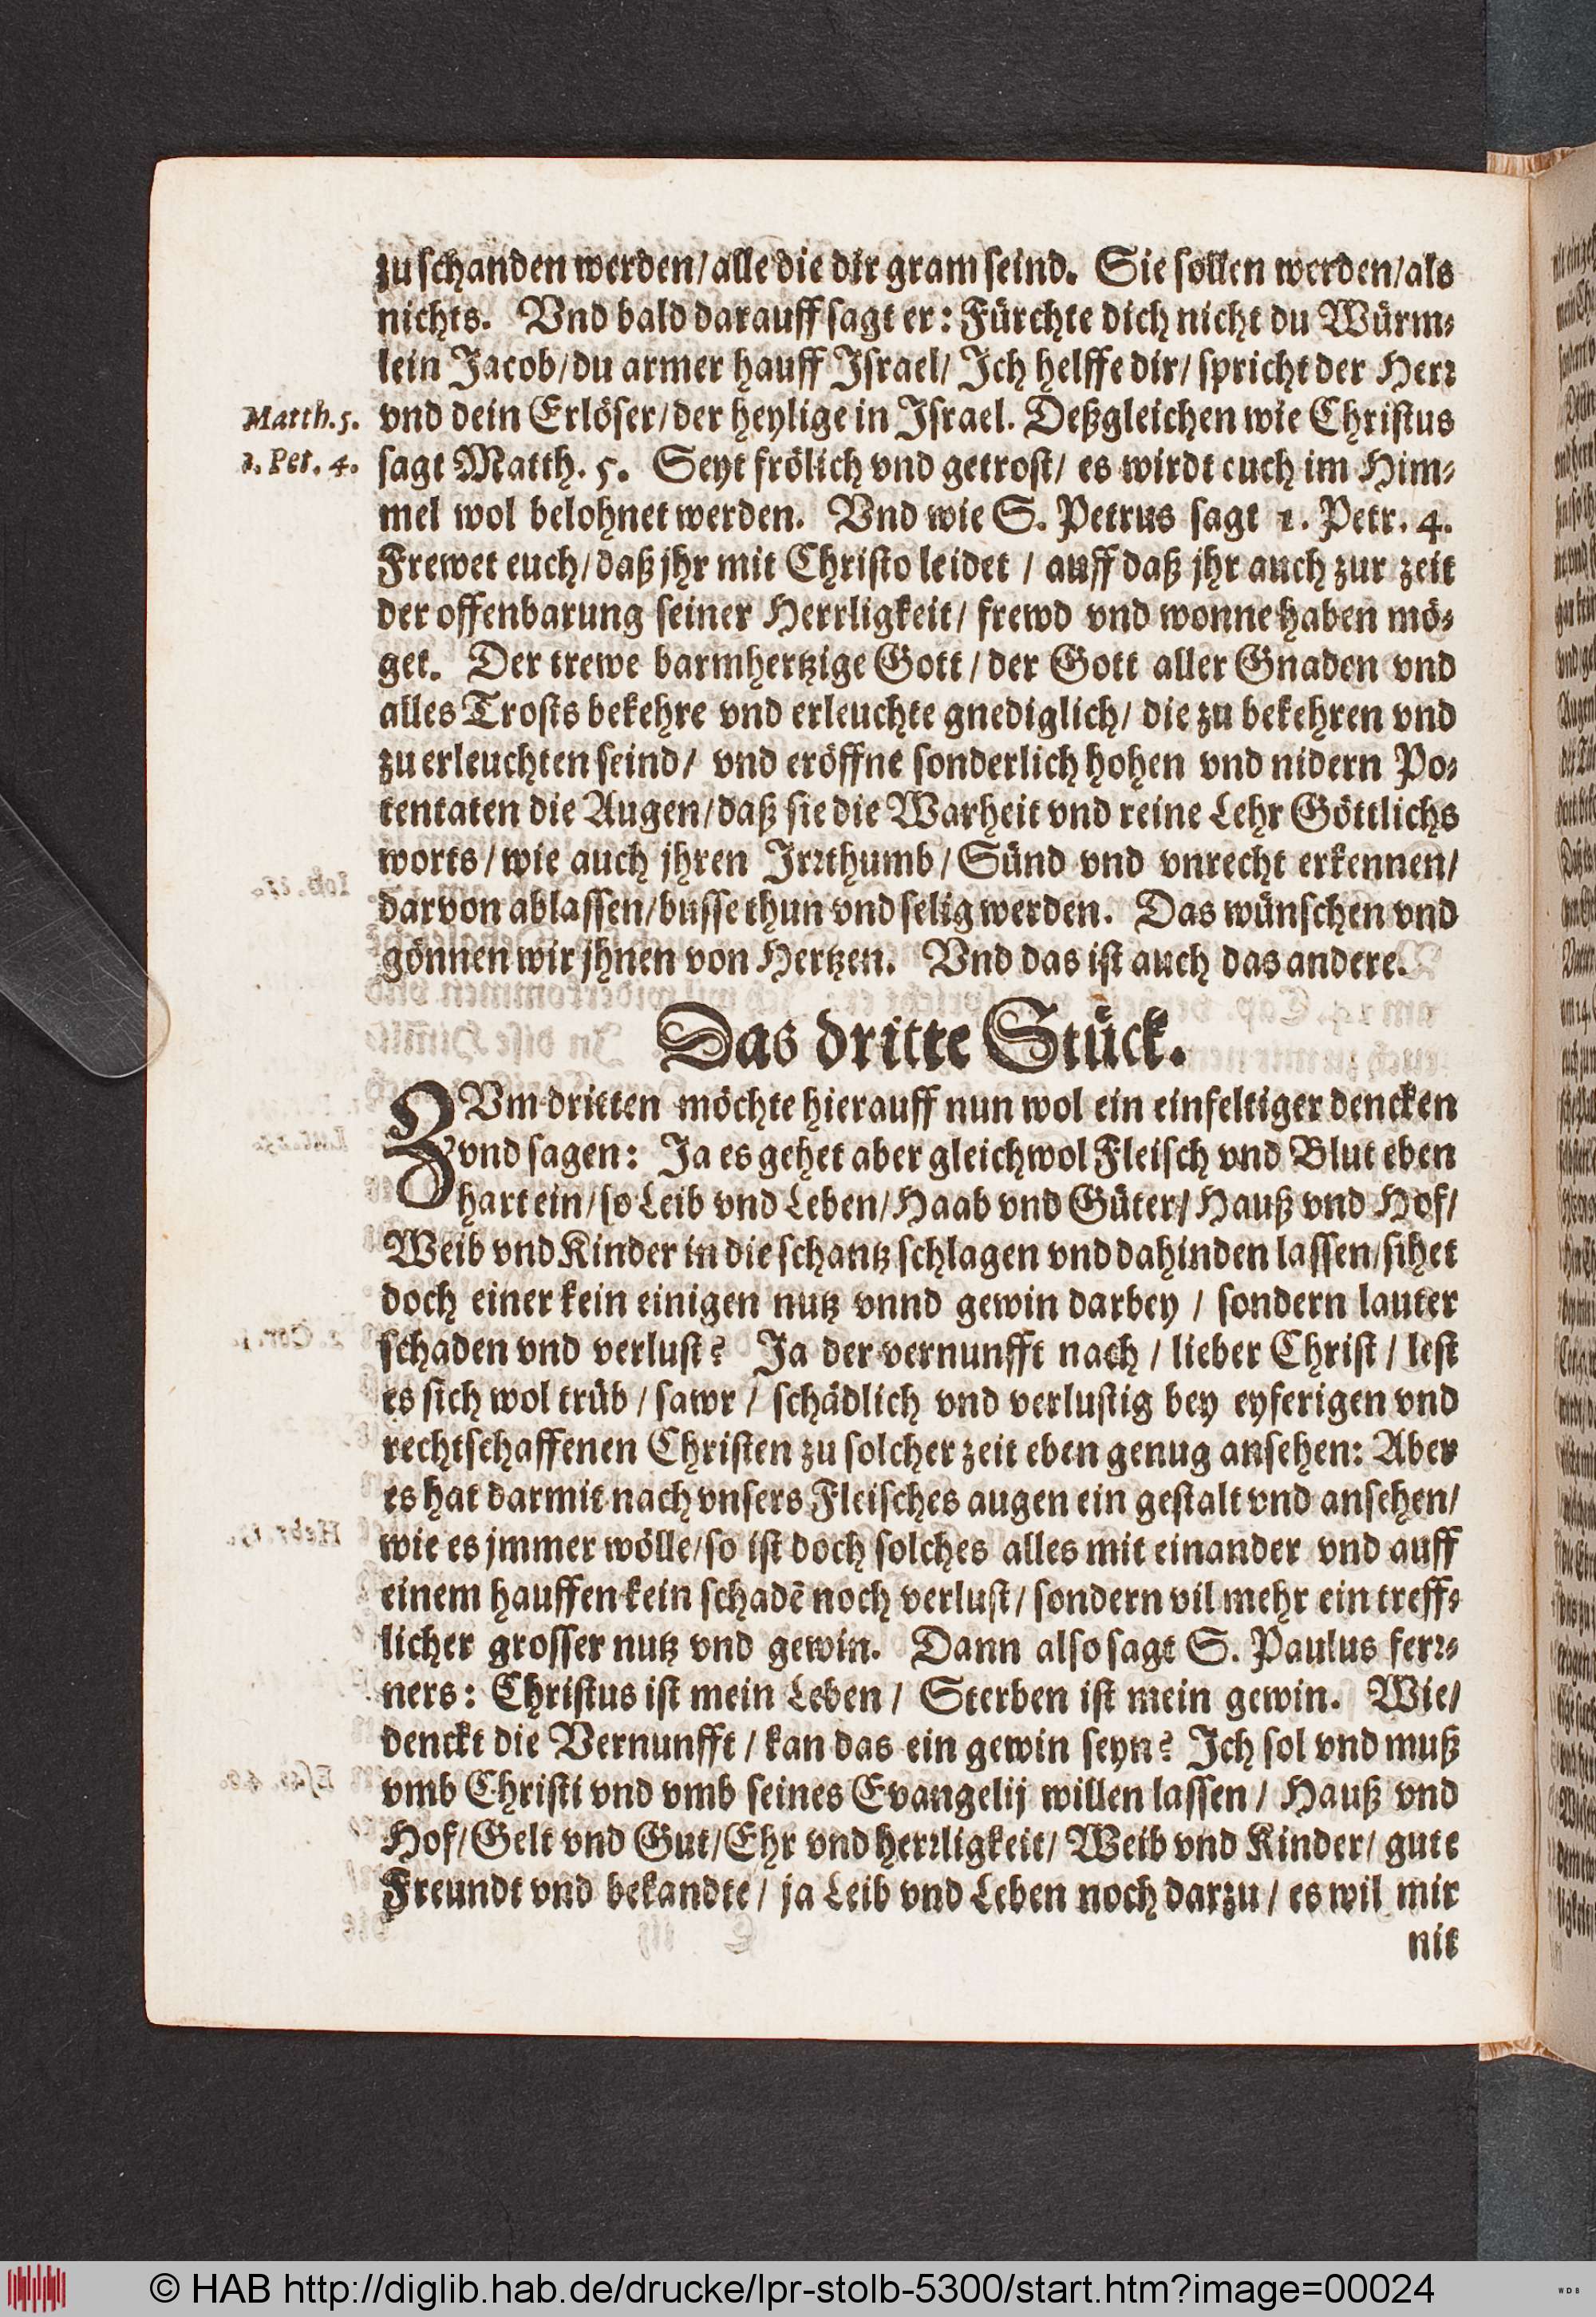 zu schanden werden/ alle die dir gram seind. Sie sollen werden/ als
nichts. Vnd bald darauff sagt er: Fürchte dich nicht du Würm⸗
lein Jacob/ du armer hauff Israel/ Ich helffe dir/ spricht der Herꝛ
Matth. 5. vnd dein Erlöser/ der heylige in Israel. Deßgleichen wie Christus
1. Pet. 4. sagt Matth. 5. Seyt frölich vnd getrost/ es wirdt euch im Him⸗
mel wol belohnet werden. Vnd wie S. Petrus sagt 1. Petr. 4.
Frewet euch/ daß jhr mit Christo leidet / auff daß jhr auch zur zeit
der offenbarung seiner Herrligkeit/ frewd vnd wonne haben mö⸗
get. Der trewe barmhertzige Gott / der Gott aller Gnaden vnd
alles Trosts bekehre vnd erleuchte gnediglich/ die zu bekehren vnd
zu erleuchten seind/ vnd eröffne sonderlich hohen vnd nidern Po⸗
tentaten die Augen/ daß sie die Warheit vnd reine Lehr Göttlichs
worts / wie auch jhren Irꝛthumb / Sünd vnd vnrecht erkennen/
darvon ablassen/ busse thun vnd selig werden. Das wünschen vnd
gönnen wir jhnen von Hertzen. Vnd das ist auch das andere.
Das dritte Stück.
ZVm dritten möchte hierauff nun wol ein einfeltiger dencken
vnd sagen: Ja es gehet aber gleichwol Fleisch vnd Blut eben
hart ein/ so Leib vnd Leben/ Haab vnd Güter/ Hauß vnd Hof/
Weib vnd Kinder in die schantz schlagen vnd dahinden lassen/ sihet
doch einer kein einigen nutz vnnd gewin darbey / sondern lauter
schaden vnd verlust? Ja der vernunfft nach / lieber Christ / lest
es sich wol trüb / sawr / schädlich vnd verlustig bey eyferigen vnd
rechtschaffenen Christen zu solcher zeit eben genug ansehen: Aber
es hat darmit nach vnsers Fleisches augen ein gestalt vnd ansehen/
wie es jmmer wölle/ so ist doch solches alles mit einander vnd auff
einem hauffen kein schadẽ noch verlust / sondern vil mehr ein treff⸗
licher grosser nutz vnd gewin. Dann also sagt S. Paulus ferꝛ⸗
ners: Christus ist mein Leben / Sterben ist mein gewin. Wie/
denckt die Vernunfft / kan das ein gewin seyn? Ich sol vnd muß
vmb Christi vnd vmb seines Evangelij willen lassen / Hauß vnd
Hof/ Gelt vnd Gut/ Ehr vnd herꝛligkeit/ Weib vnd Kinder/ gute
Freundt vnd bekandte / ja Leib vnd Leben noch darzu / es wil mir
nit
© HAB http://diglib.hab.de/drucke/lpr-stolb-5300/start.htm?image=00024
WDB